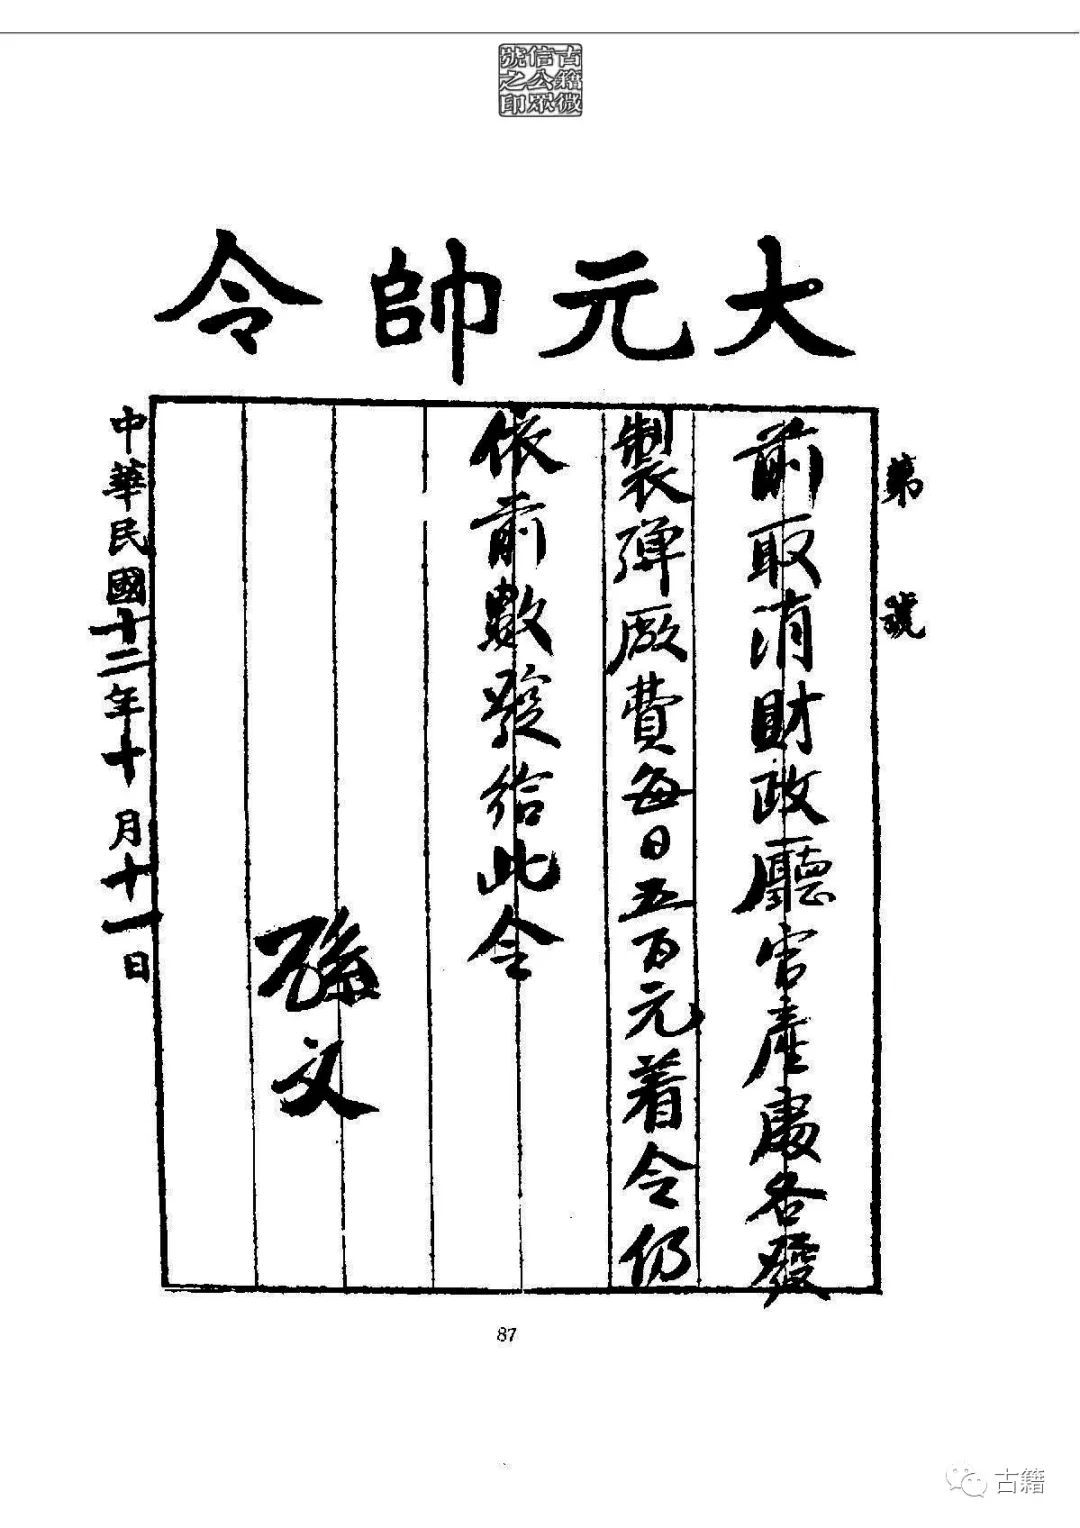 古籍微
信公眾
號之印
大元帥令
第　號
前取消財政廳官產處各發
製彈廠費每日五百元着令仍
依前數發給此令
孫文
中華民國十二年十月十一日
87
古籍